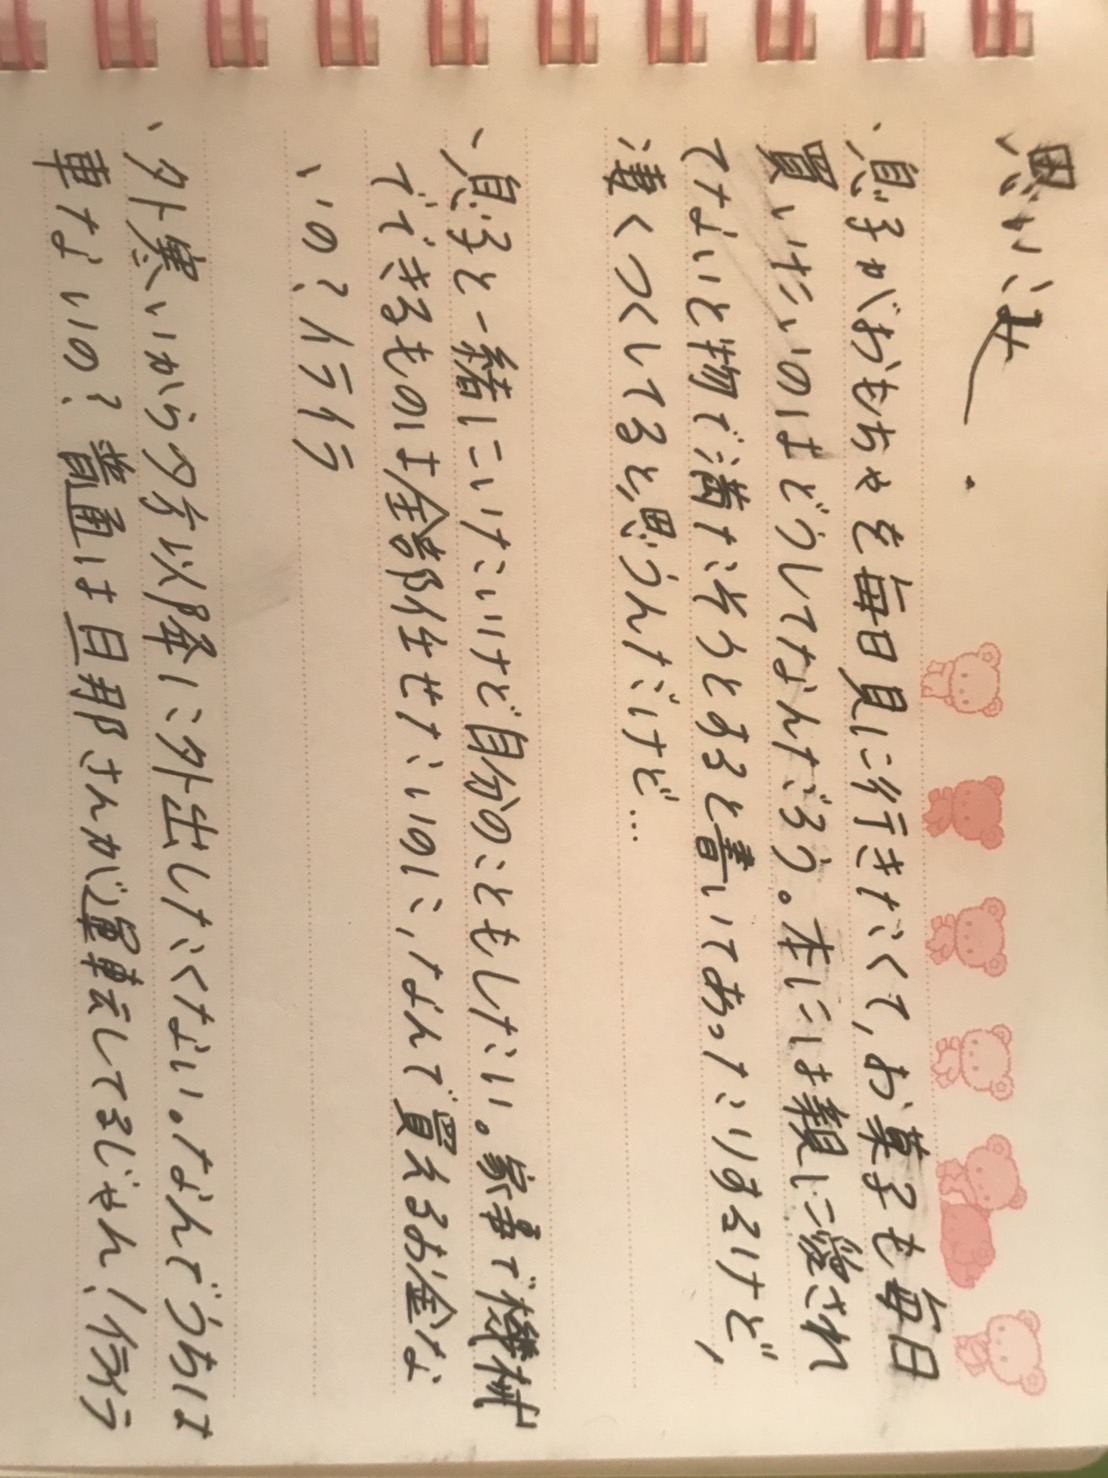 思い込み.
、息子がおもちゃを毎日見に行きたくて,お菓子も毎日
買いたいのはどうしてなんだろう。本には親に愛され
てないと物で満たそうとすると書いてあったりするけど,
凄くつくしてると思うんだけど…
、息子と一緒にいたいけど自分のこともしたい。家事で機械
でできるものは全部任せたいのに,なんで買えるお金な
いの?イライラ
、外寒いから夕方以降に外出したくない。なんでうちは
車ないの?普通は旦那さんが運転してるじゃん!イライラ